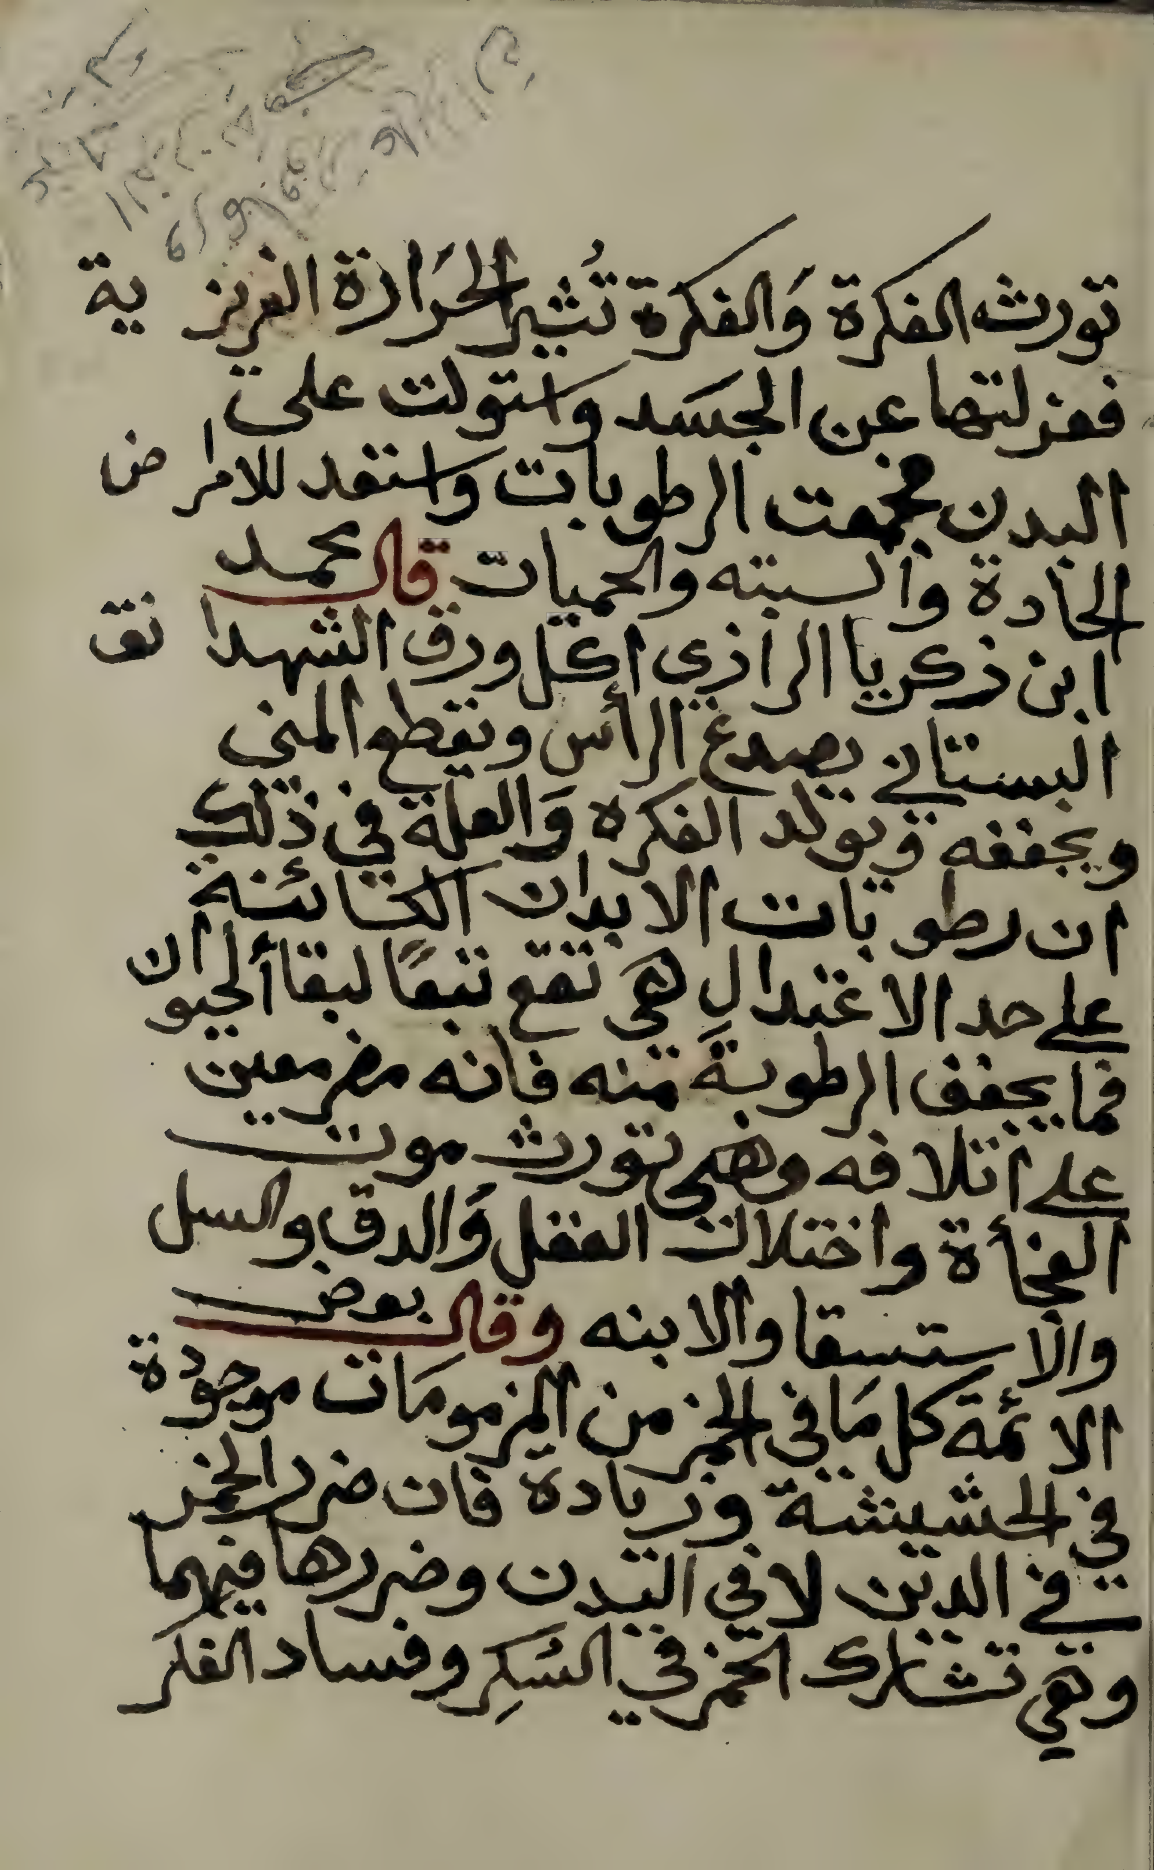 تورث الفكرة وَالفكرة تُثير الحَرارة الغريزية
فعزلتها عن الجسَد واستولت على
البدن فجمعت الرطوبات واستعد للامراض
الحادة والسبته والحميات قال محمد
ابن زكريا الرازي اكل ورق الشهدانق
البستاني يصدع الرأس ويقطع المني
ويجففه ويولد الفكره وَالعلة في ذلك
ان رطوبات الابدان الكائنة
على حد الاعتدال هي تقع تبعًا لبقاء الحيوان
فما يجفف الرطوبةَ منه فانه مضر معين
على اتلافه وهي تورث موت
الفجأة واختلال العقل وَالدق والسل
والاستسقا والابنه وقال بعض
الائمة كل مَا في الخمر من المزمومَات موجودة
في الحشيشة وزيادة فان ضرر الخمر
في الدين لا في البدن وضررها فيهما
وهي تشارك الخمر في السَكِر وفساد الفكر